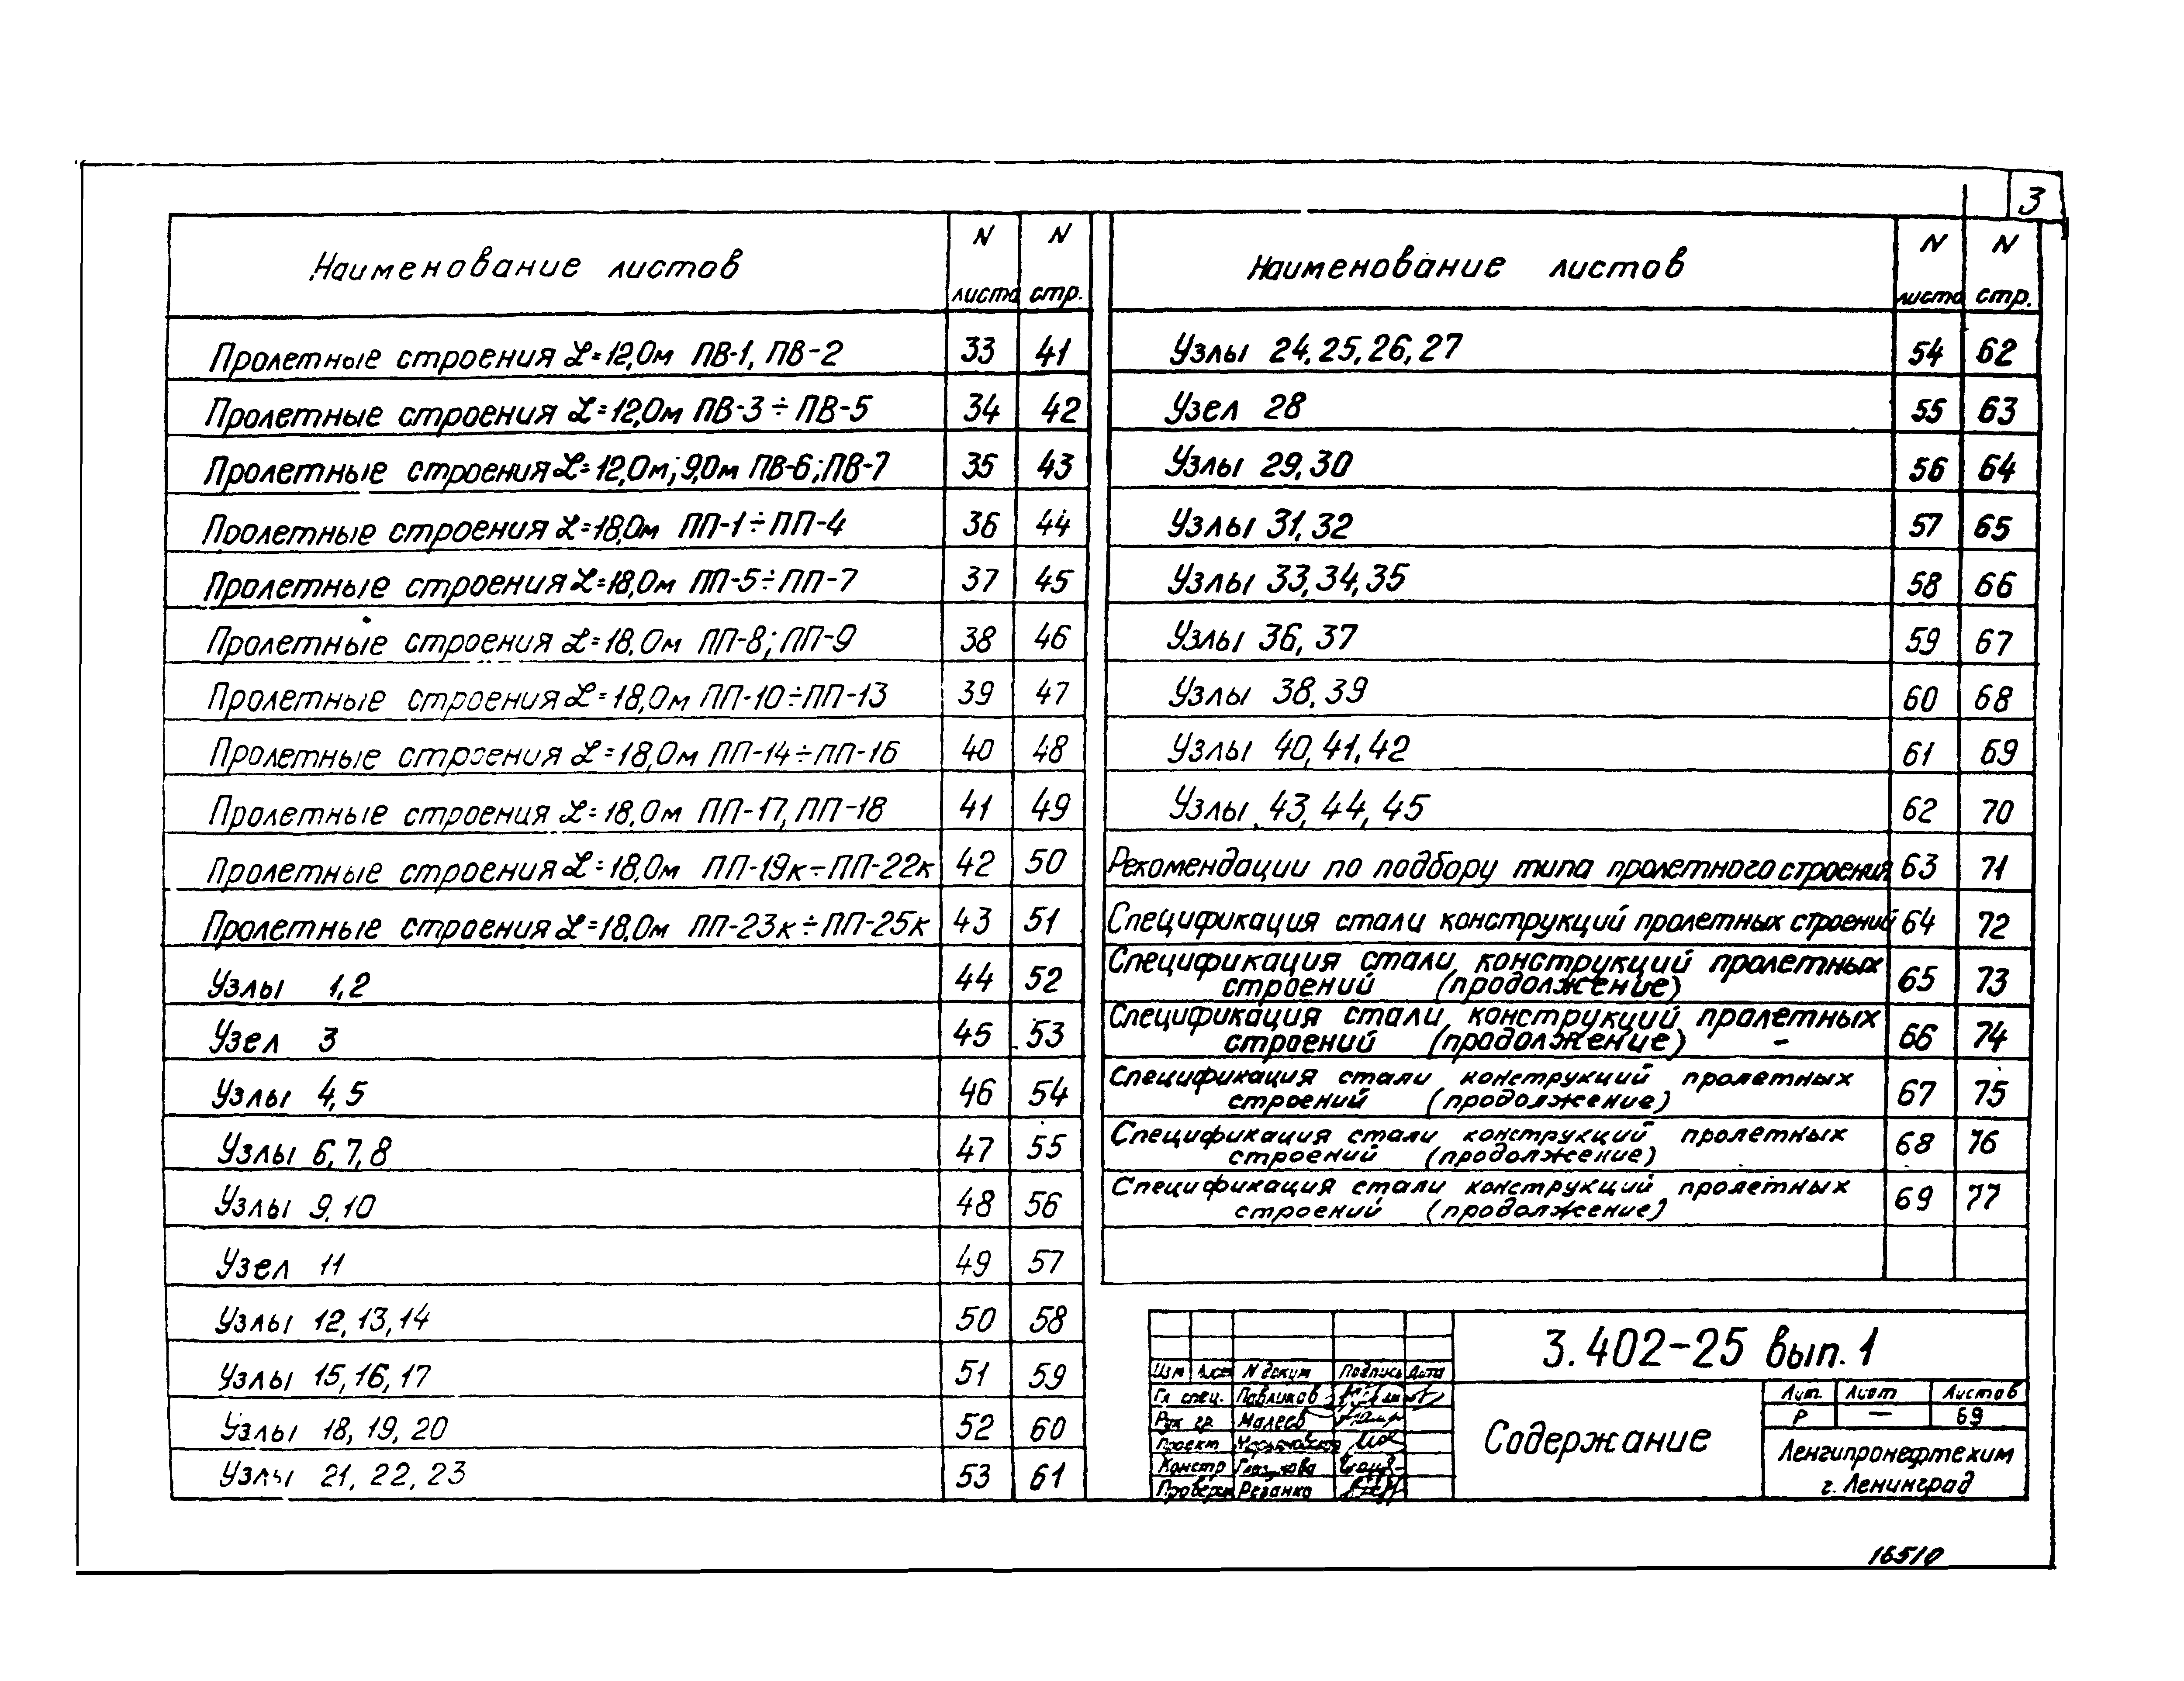 3
Наименование листов N листа N стр.
Пролетные строения L=12,0м ПВ-1, ПВ-2 33 41
Пролетные строения L=12,0м ПВ-3 ÷ ПВ-5 34 42
Пролетные строения L=12,0м; 9,0м ПВ-6; ПВ-7 35 43
Пролетные строения L=18,0м ПП-1 ÷ ПП-4 36 44
Пролетные строения L=18,0м ПП-5 ÷ ПП-7 37 45
Пролетные строения L=18,0м ПП-8; ПП-9 38 46
Пролетные строения L=18,0м ПП-10 ÷ ПП-13 39 47
Пролетные строения L=18,0м ПП-14 ÷ ПП-16 40 48
Пролетные строения L=18,0м ПП-17, ПП-18 41 49
Пролетные строения L=18,0м ПП-19к ÷ ПП-22к 42 50
Пролетные строения L=18,0м ПП-23к ÷ ПП-25к 43 51
Узлы 1,2 44 52
Узел 3 45 53
Узлы 4,5 46 54
Узлы 6,7,8 47 55
Узлы 9,10 48 56
Узел 11 49 57
Узлы 12,13,14 50 58
Узлы 15,16,17 51 59
Узлы 18,19,20 52 60
Узлы 21,22,23 53 61
Наименование листов N листа N стр.
Узлы 24,25,26,27 54 62
Узел 28 55 63
Узлы 29,30 56 64
Узлы 31,32 57 65
Узлы 33,34,35 58 66
Узлы 36,37 59 67
Узлы 38,39 60 68
Узлы 40,41,42 61 69
Узлы 43,44,45 62 70
Рекомендации по подбору типа пролетного строения 63 71
Спецификация стали конструкций пролетных строений 64 72
Спецификация стали конструкций пролетных
строений (продолжение) 65 73
Спецификация стали конструкций пролетных
строений (продолжение) 66 74
Спецификация стали конструкций пролетных
строений (продолжение) 67 75
Спецификация стали конструкций пролетных
строений (продолжение) 68 76
Спецификация стали конструкций пролетных
строений (продолжение) 69 77
3.402-25 вып. 1
Изм Лист N докум Подпись Дата
Гл спец. Павликов
Рук гр. Малеев
Проект
Констр
Проверил
Содержание
Лит. Лист Листов
Р — 69
Ленгипронефтехим
г. Ленинград
16510